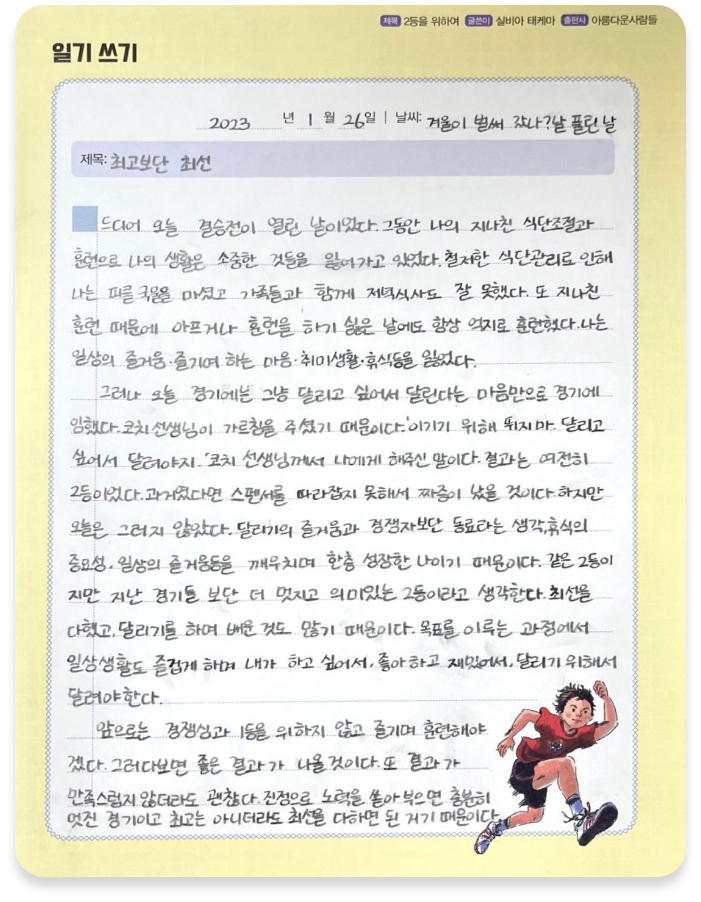 제목 2등을 위하여 글쓴이 실비아 태케마 출판사 아름다운사람들
일기 쓰기
2023 년 1 월 26일 | 날씨: 겨울이 벌써 갔나?날 풀린 날
제목: 최고보단 최선
드디어 오늘 결승전이 열린 날이었다. 그동안 나의 지나친 식단조절과
훈련으로 나의 생활은 소중한 것들을 잃어가고 있었다. 철저한 식단관리로 인해
나는 피클 국물을 마셨고 가족들과 함께 저녁식사도 잘 못했다. 또 지나친
훈련 때문에 아프거나 훈련을 하기 싫은 날에도 항상 억지로 훈련했다. 나는
일상의 즐거움·즐기며 하는 마음·취미생활·휴식등을 잃었다.
그러나 오늘 경기에는 그냥 달리고 싶어서 달린다는 마음만으로 경기에
임했다. 코치선생님이 가르침을 주셨기 때문이다.'이기기 위해 뛰지마. 달리고
싶어서 달려야지.'코치 선생님께서 나에게 해주신 말이다. 결과는 여전히
2등이었다. 과거였다면 스펜서를 따라잡지 못해서 짜증이 났을 것이다. 하지만
오늘은 그러지 않았다. 달리기의 즐거움과 경쟁자보단 동료라는 생각, 휴식의
중요성, 일상의 즐거움등을 깨우치며 한층 성장한 나이기 때문이다. 같은 2등이
지만 지난 경기들 보단 더 멋지고 의미있는 2등이라고 생각한다. 최선을
다했고, 달리기를 하며 배운 것도 많기 때문이다. 목표를 이루는 과정에서
일상생활도 즐겁게 하며 내가 하고 싶어서, 좋아하고 재밌어서, 달리기 위해서
달려야한다.
앞으로는 경쟁심과 1등을 위하지 않고 즐기며 훈련해야
겠다. 그러다보면 좋은 결과가 나올것이다. 또 결과가
만족스럽지 않더라도 괜찮다. 진정으로 노력을 쏟아부으면 충분히
멋진 경기이고 최고는 아니더라도 최선을 다하면 된 거기 때문이다.